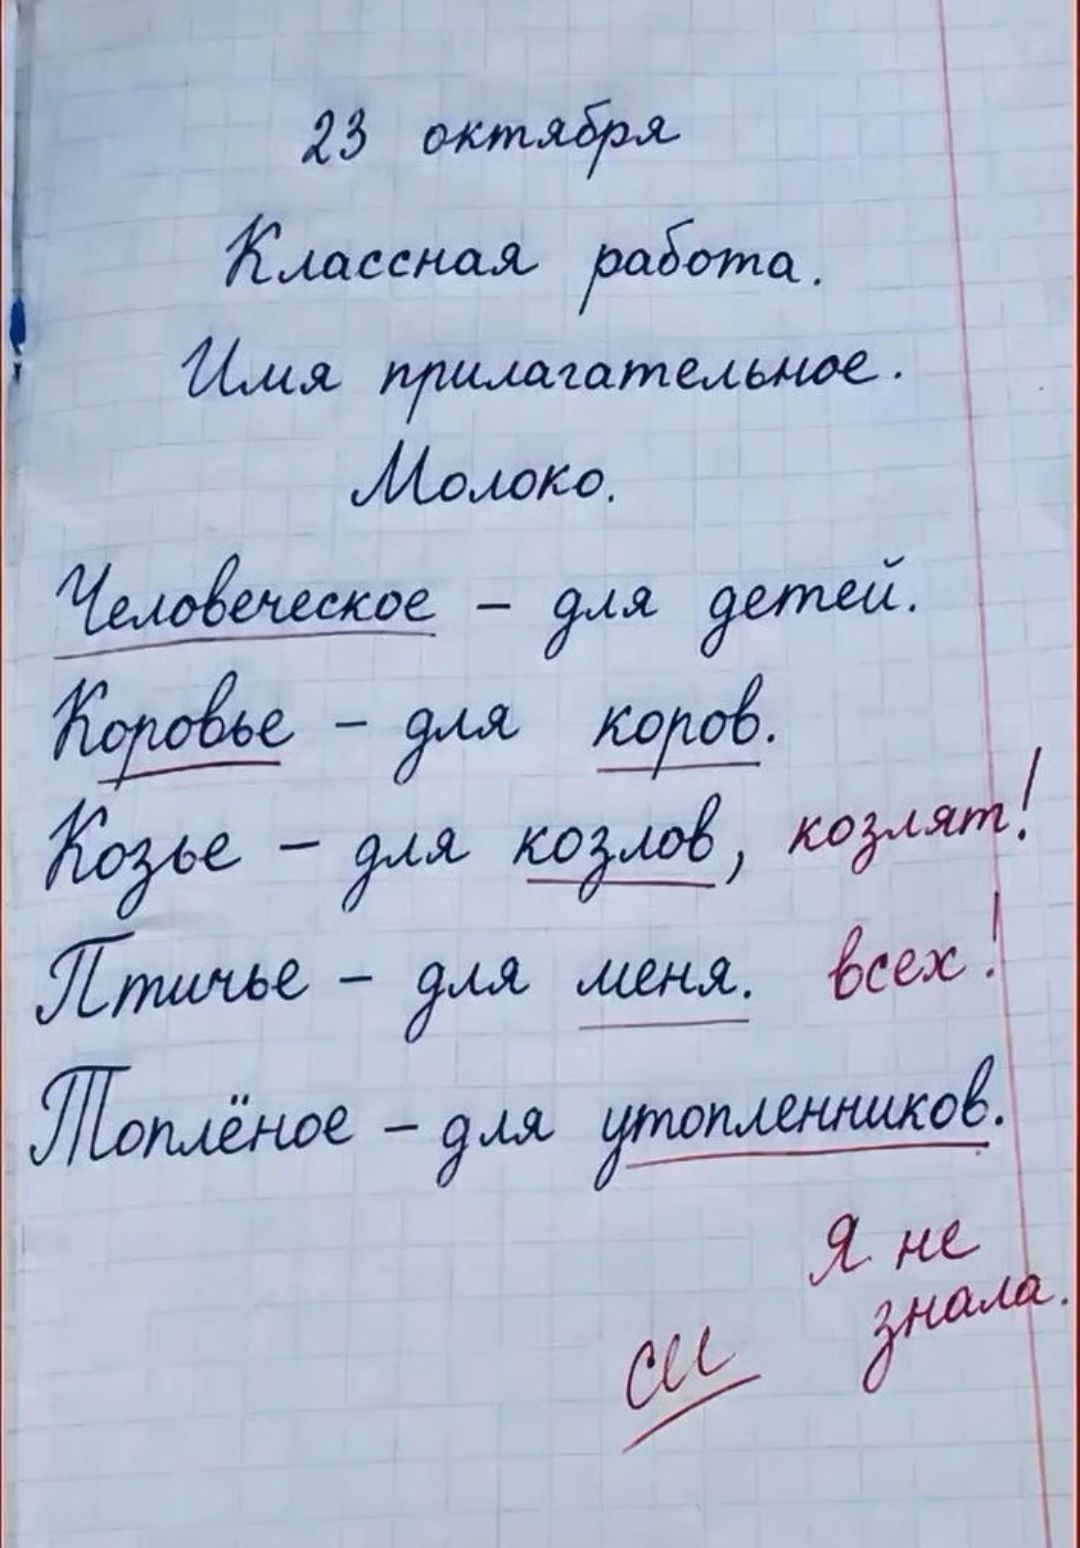 23 октября
Классная работа.
Имя прилагательное.
Молоко.
Человеческое – для детей.
Коровье – для коров.
Козье – для козлов, козлят!
Птичье – для меня. всех!
Топлёное – для утопленников.
Я не
знала.
см